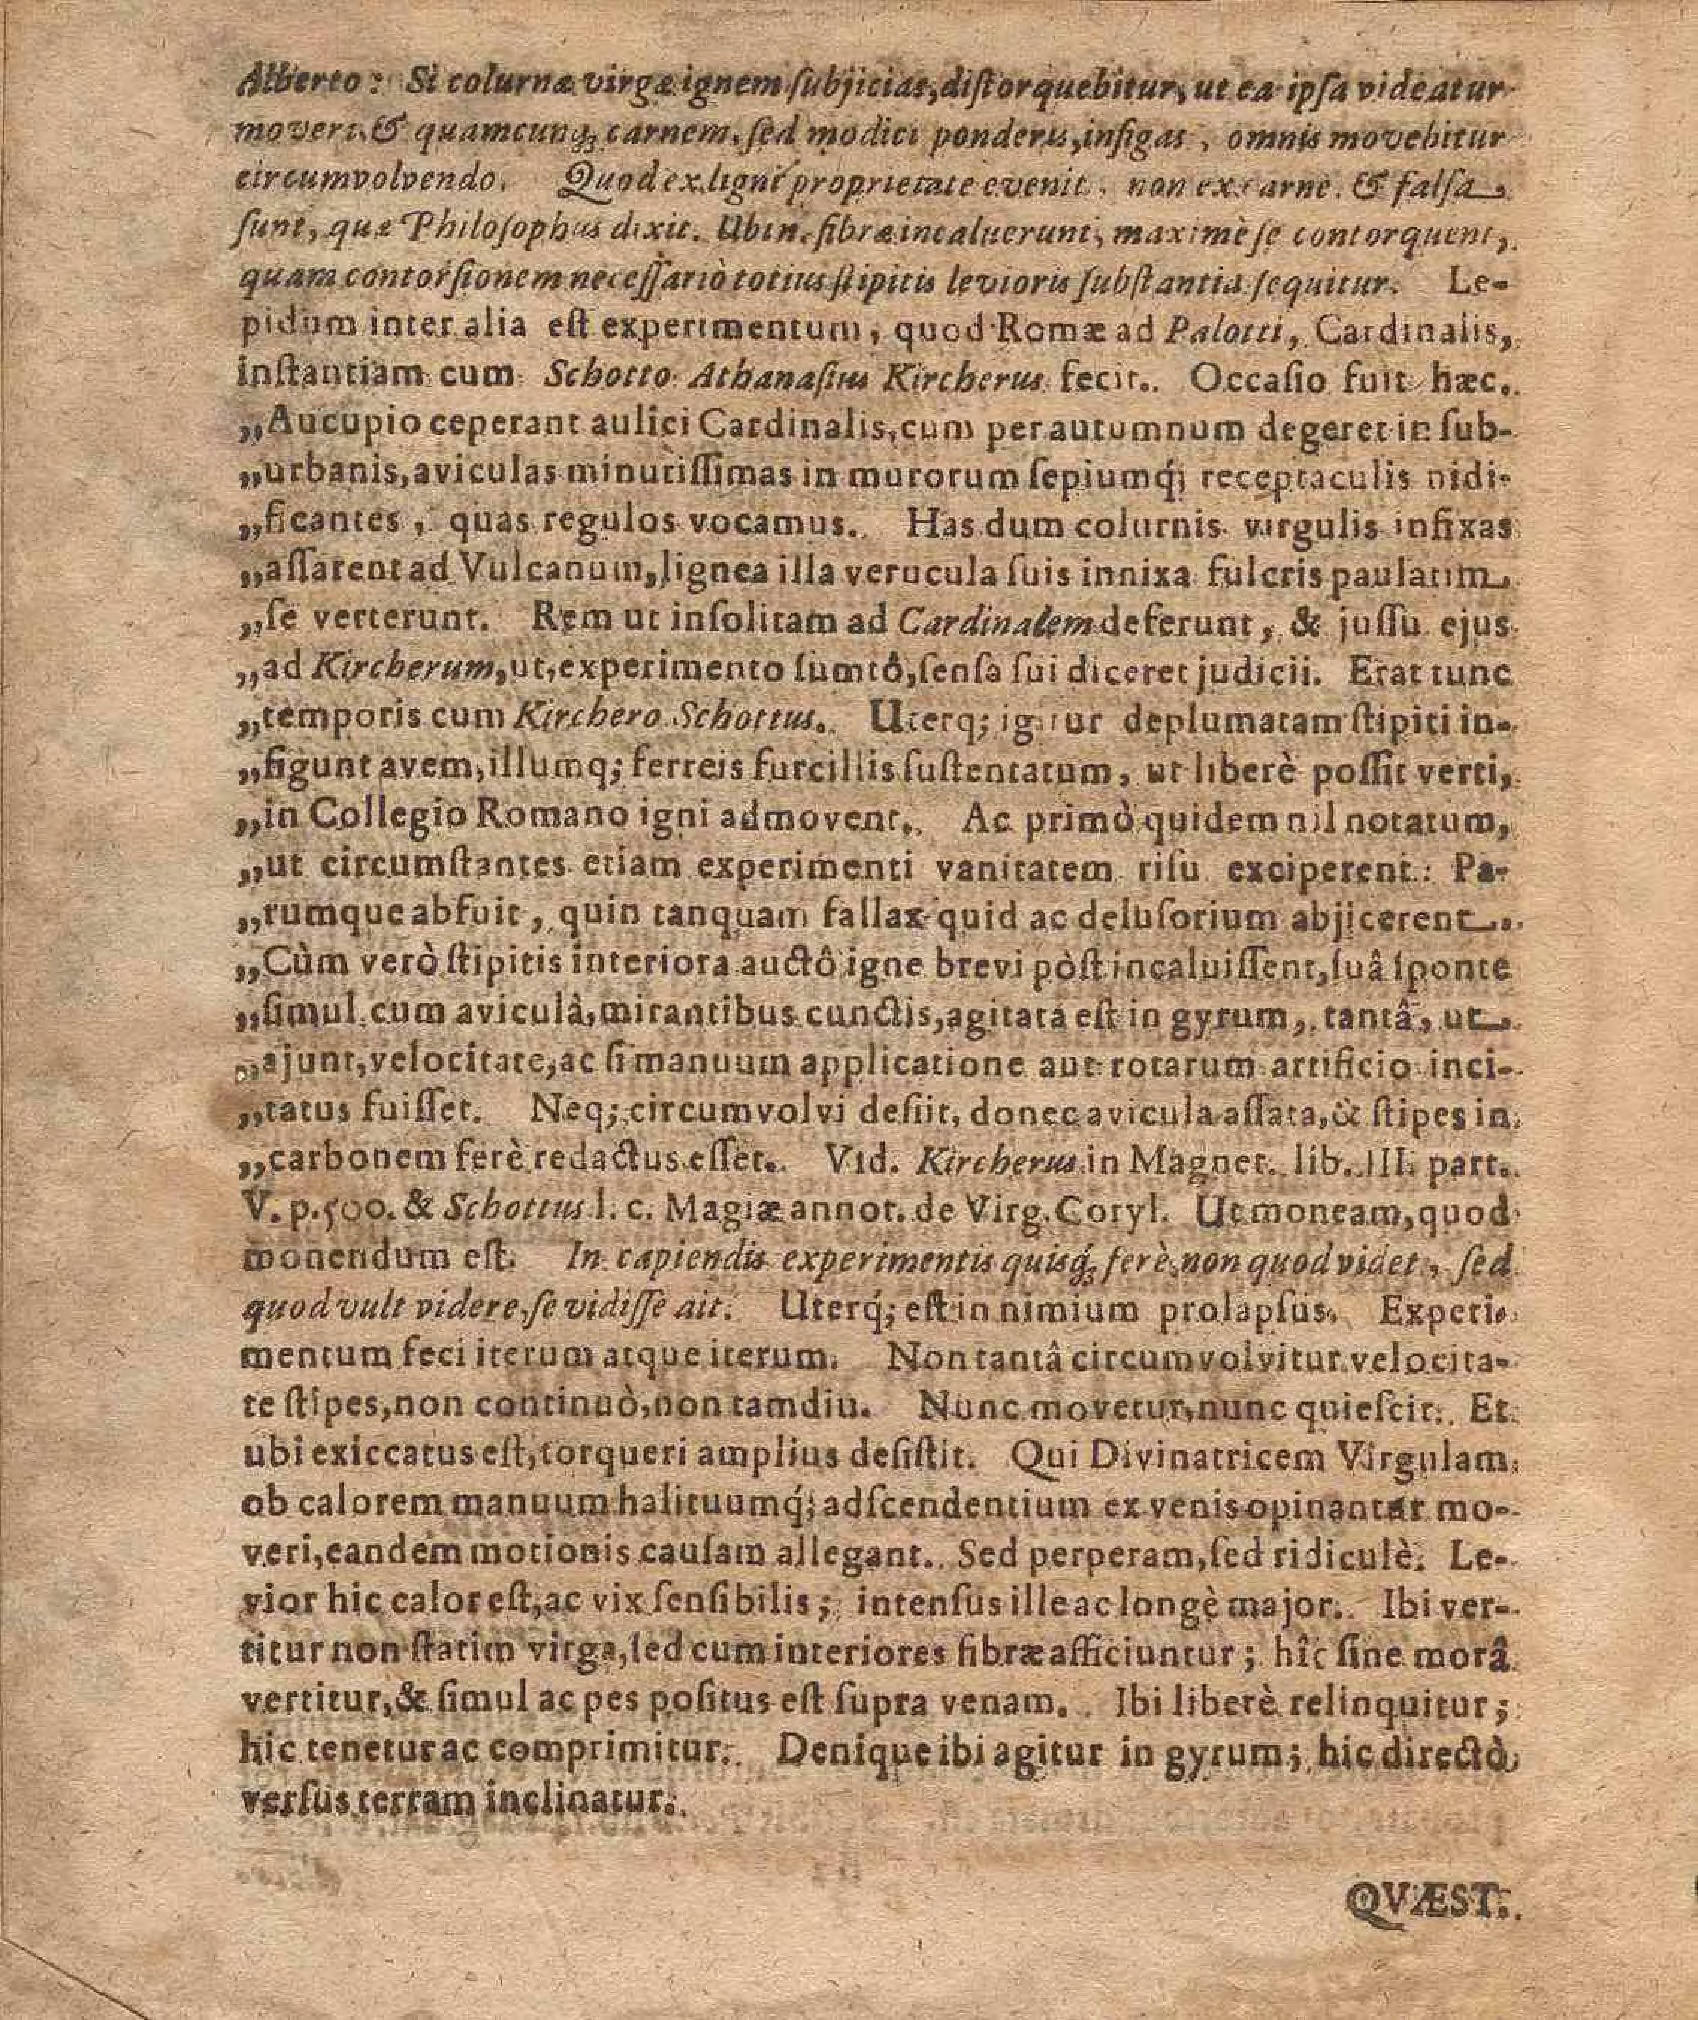 Alberto: Si colurnæ virgæ ignem ſubjicias, diſtorquebitur, ut ea ipſa videatur
moveri. & quamcunq; carnem, ſed modici ponderis, infigas, omnis movebitur
circumvolvendo. Quod ex ligni proprietate evenit, non ex carne. & falſa
ſunt, quæ Philoſophus dixit. Ubi n. fibræ incaluerunt, maximè ſe contorquent,
quam contorſionem neceſſariò totius ſtipitis levioris ſubſtantia ſequitur. Le-
pidum inter alia eſt experimentum, quod Romæ ad Palotti, Cardinalis,
inſtantiam cum Schotto Athanaſius Kircherus fecit. Occaſio fuit hæc.
„Aucupio ceperant aulici Cardinalis, cum per autumnum degeret in ſub-
„urbanis, aviculas minutiſſimas in murorum ſepiumq́; receptaculis nidi-
„ficantes, quas regulos vocamus. Has dum colurnis virgulis infixas
„aſſarent ad Vulcanum, lignea illa verucula ſuis innixa fulcris paulatim
„ſe verterunt. Rem ut inſolitam ad Cardinalem deferunt, & juſſu ejus
„ad Kircherum, ut, experimento ſumtô, ſenſa ſui diceret judicii. Erat tunc
„temporis cum Kirchero Schottus. Uterq; igitur deplumatam ſtipiti in-
„figunt avem, illumq; ferreis furcillis ſuſtentatum, ut liberè poſſit verti,
„in Collegio Romano igni admovent. Ac primò quidem nil notatum,
„ut circumſtantes etiam experimenti vanitatem riſu exciperent: Pa-
„rumque abfuit, quin tanquam fallax quid ac deluſorium abjicerent.
„Cùm verò ſtipitis interiora auctô igne brevi pòſt incaluiſſent, ſuâ ſponte
„ſimul cum aviculâ, mirantibus cunctis, agitata eſt in gyrum, tantâ, ut
„ajunt, velocitate, ac ſi manuum applicatione aut rotarum artificio inci-
„tatus fuiſſet. Neq; circumvolvi deſiit, donec avicula aſſata, & ſtipes in
„carbonem ferè redactus eſſet. Vid. Kircherus in Magnet. lib. III. part.
V. p. 500. & Schottus l. c. Magiæ annot. de Virg. Coryl. Ut moneam, quod
monendum eſt. In capiendis experimentis quisq́; ferè, non quod videt, ſed
quod vult videre, ſe vidiſſe ait. Uterq́; eſt in nimium prolapſus. Experi-
mentum feci iterum atque iterum. Non tantâ circumvolvitur velocita-
te ſtipes, non continuò, non tamdiu. Nunc movetur, nunc quieſcit. Et
ubi exiccatus eſt, torqueri amplius deſiſtit. Qui Divinatricem Virgulam
ob calorem manuum halituumq́; adſcendentium ex venis opinantur mo-
veri, eandem motionis cauſam allegant. Sed perperam, ſed ridiculè. Le-
vior hic calor eſt, ac vix ſenſibilis; intenſus ille ac longè major. Ibi ver-
titur non ſtatim virga, ſed cum interiores fibræ afficiuntur; hîc ſine morâ
vertitur, & ſimul ac pes poſitus eſt ſupra venam. Ibi liberè relinquitur;
hic tenetur ac comprimitur. Denique ibi agitur in gyrum; hic directò
verſus terram inclinatur.
QVÆST.